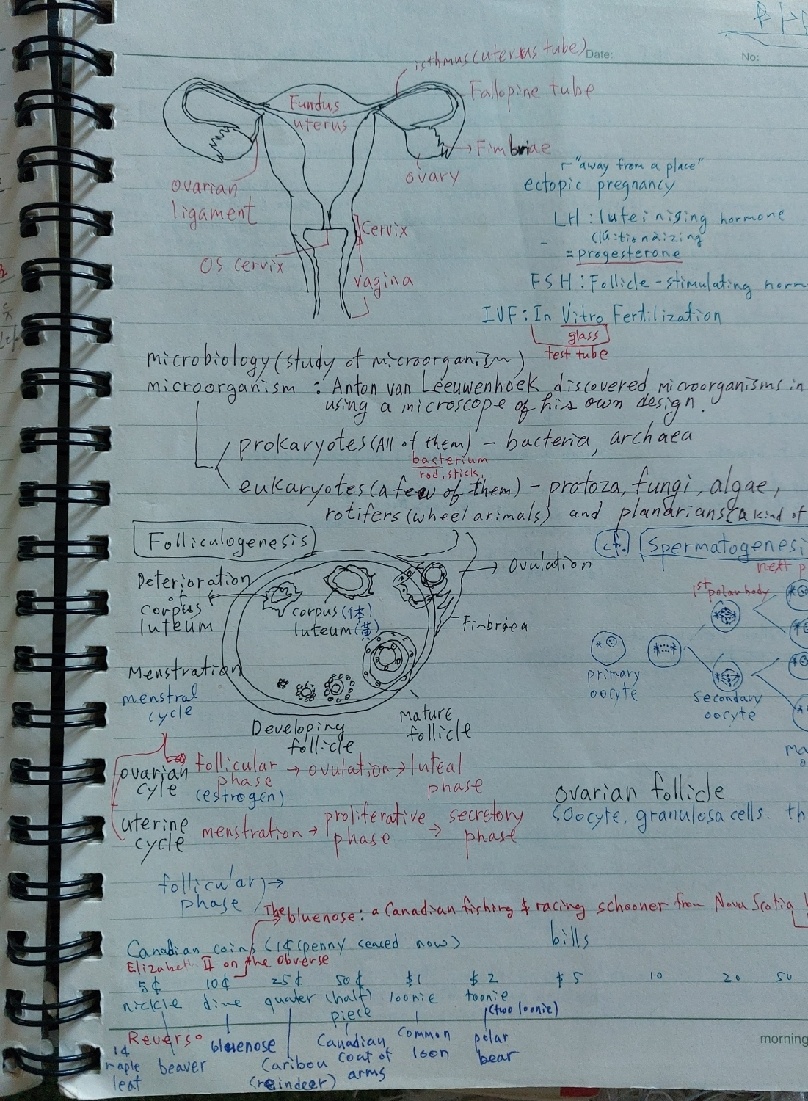 Date:
No:
isthmus (uterus tube)
Fallopine tube
Fundus
uterus
Fimbriae
ovary
ovarian
ligament
Cervix
OS cervix
vagina
"away from a place"
ectopic pregnancy
LH : luteinising hormone
= progesterone
FSH : Follicle-stimulating horm
IVF : In Vitro Fertilization
glass
test tube
microbiology (study of microorganism)
microorganism : Anton van Leeuwenhoek discovered microorganisms in
using a microscope of his own design.
prokaryotes (All of them) - bacteria, archaea
bacterium
rod, stick
eukaryotes (a few of them) - protoza, fungi, algae,
rotifers (wheel animals) and planarians (a kind of
Folliculogenesis
cf.) Spermatogenesi
next p
Deterioration
of
corpus
luteum
corpus (体)
luteum (黄)
Ovulation
Fimbriea
1st polar body
primary
oocyte
secondary
oocyte
ma
Menstration
menstral
cycle
Developing
follicle
mature
follicle
ovarian
cyle
follicular
phase
(estrogen)
→ ovulation → luteal
phase
uterine
cycle
menstration → proliferative
phase
→ secretory
phase
ovarian follicle
Oocyte, granulosa cells th
follicular
phase
→
The bluenose : a Canadian fishing & racing schooner from Nova Scotia
Canadian coins (1¢ (penny ceased now)
bills
Elizabeth II on the obverse
5¢ 10¢ 25¢ 50¢ $1 $2 $5 10 20 50
nickle dime quater (half loonie toonie
piece
(two loonie)
Reverse
1¢
maple
leaf
beaver
bluenose
Caribou
(reindeer)
Canadian
coat of
arms
common
loon
polar
bear
morning